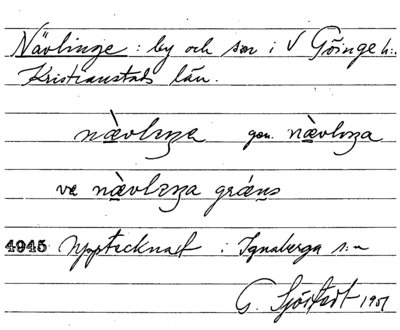 Nävlinge : by och sn i V Göinge h:.
Kristianstads län.
næ̀vlıŋa gen. næ̀vlıŋa
ve næ̀vlıŋa grǽn̥s
4945 Upptecknat i Ignaberga s:n
G. Sjöstedt 1951